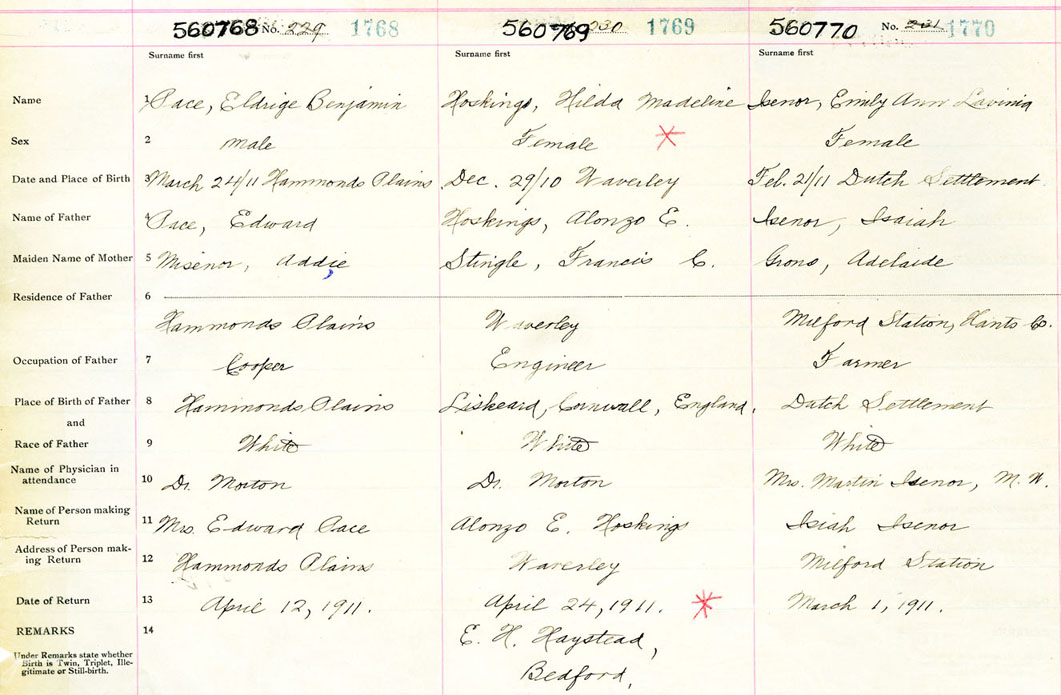 560768 No. 229 1768 560769 230 1769 560770 No. 231 1770
Surname first Surname first Surname first
Name 1 Pace, Eldrige Benjamin Hoskings, Hilda Madeline Isenor, Emily Ann Lavinia
Sex 2 Male Female Female
Date and Place of Birth 3 March 24/11 Hammonds Plains Dec. 29/10 Waverley Feb. 21/11 Dutch Settlement
Name of Father 4 Pace, Edward Hoskings, Alonzo E. Isenor, Isaiah
Maiden Name of Mother 5 Misenor, Addie Stingle, Francis C. Grono, Adelaide
Residence of Father 6
Hammonds Plains Waverley Milford Station, Hants Co.
Occupation of Father 7 Cooper Engineer Farmer
Place of Birth of Father 8 Hammonds Plains Liskeard, Cornwall, England. Dutch Settlement
and
Race of Father 9 White White White
Name of Physician in
attendance 10 Dr. Morton Dr. Morton Mrs. Martin Isenor, M. W.
Name of Person making
Return 11 Mrs Edward Pace Alonzo E. Hoskings Isiah Isenor
Address of Person mak-
ing Return 12 Hammonds Plains Waverley Milford Station
Date of Return 13 April 12, 1911. April 24, 1911. March 1, 1911.
REMARKS 14 E. H. Haystead,
Under Remarks state whether
Birth is Twin, Triplet, Ille-
gitimate or Still-birth.
Bedford,